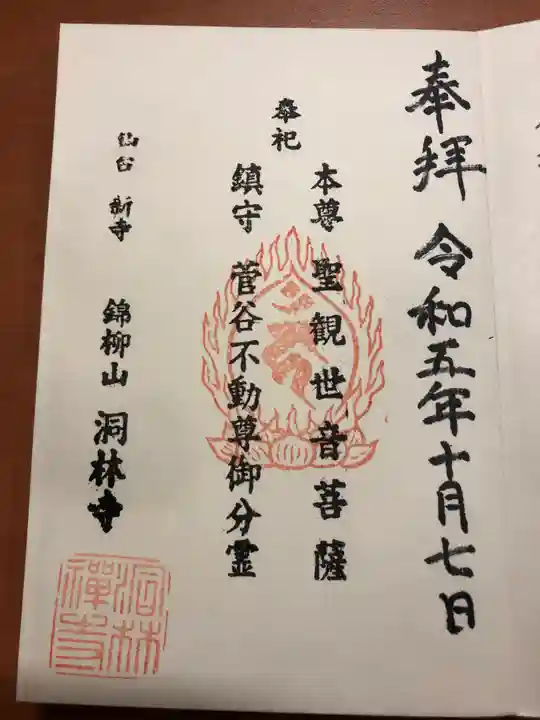 奉拜 令和五年十月七日
奉祀
本尊 聖観世音菩薩
鎮守 菅谷不動尊御分霊
仙台 新寺 錦柳山 洞林寺
洞林
禪寺